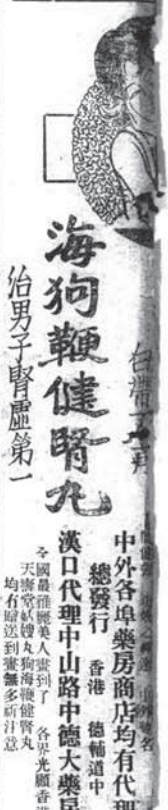 海狗鞭健腎丸
治男子腎虛第一
中外各埠藥房商店均有代理
總發行 香港 德輔道中
漢口代理中山路中德大藥房
全國最雅麗美人畫到了 各界光顧香港
天壽堂姑嫂丸狗海鞭健腎丸
均有贈送到畫無多祈注意